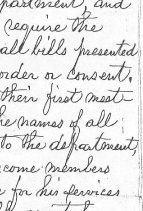 partment, and
require the
all bills presented
order or consent.
their first meet-
he names of all
to the department,
come members
e for his services